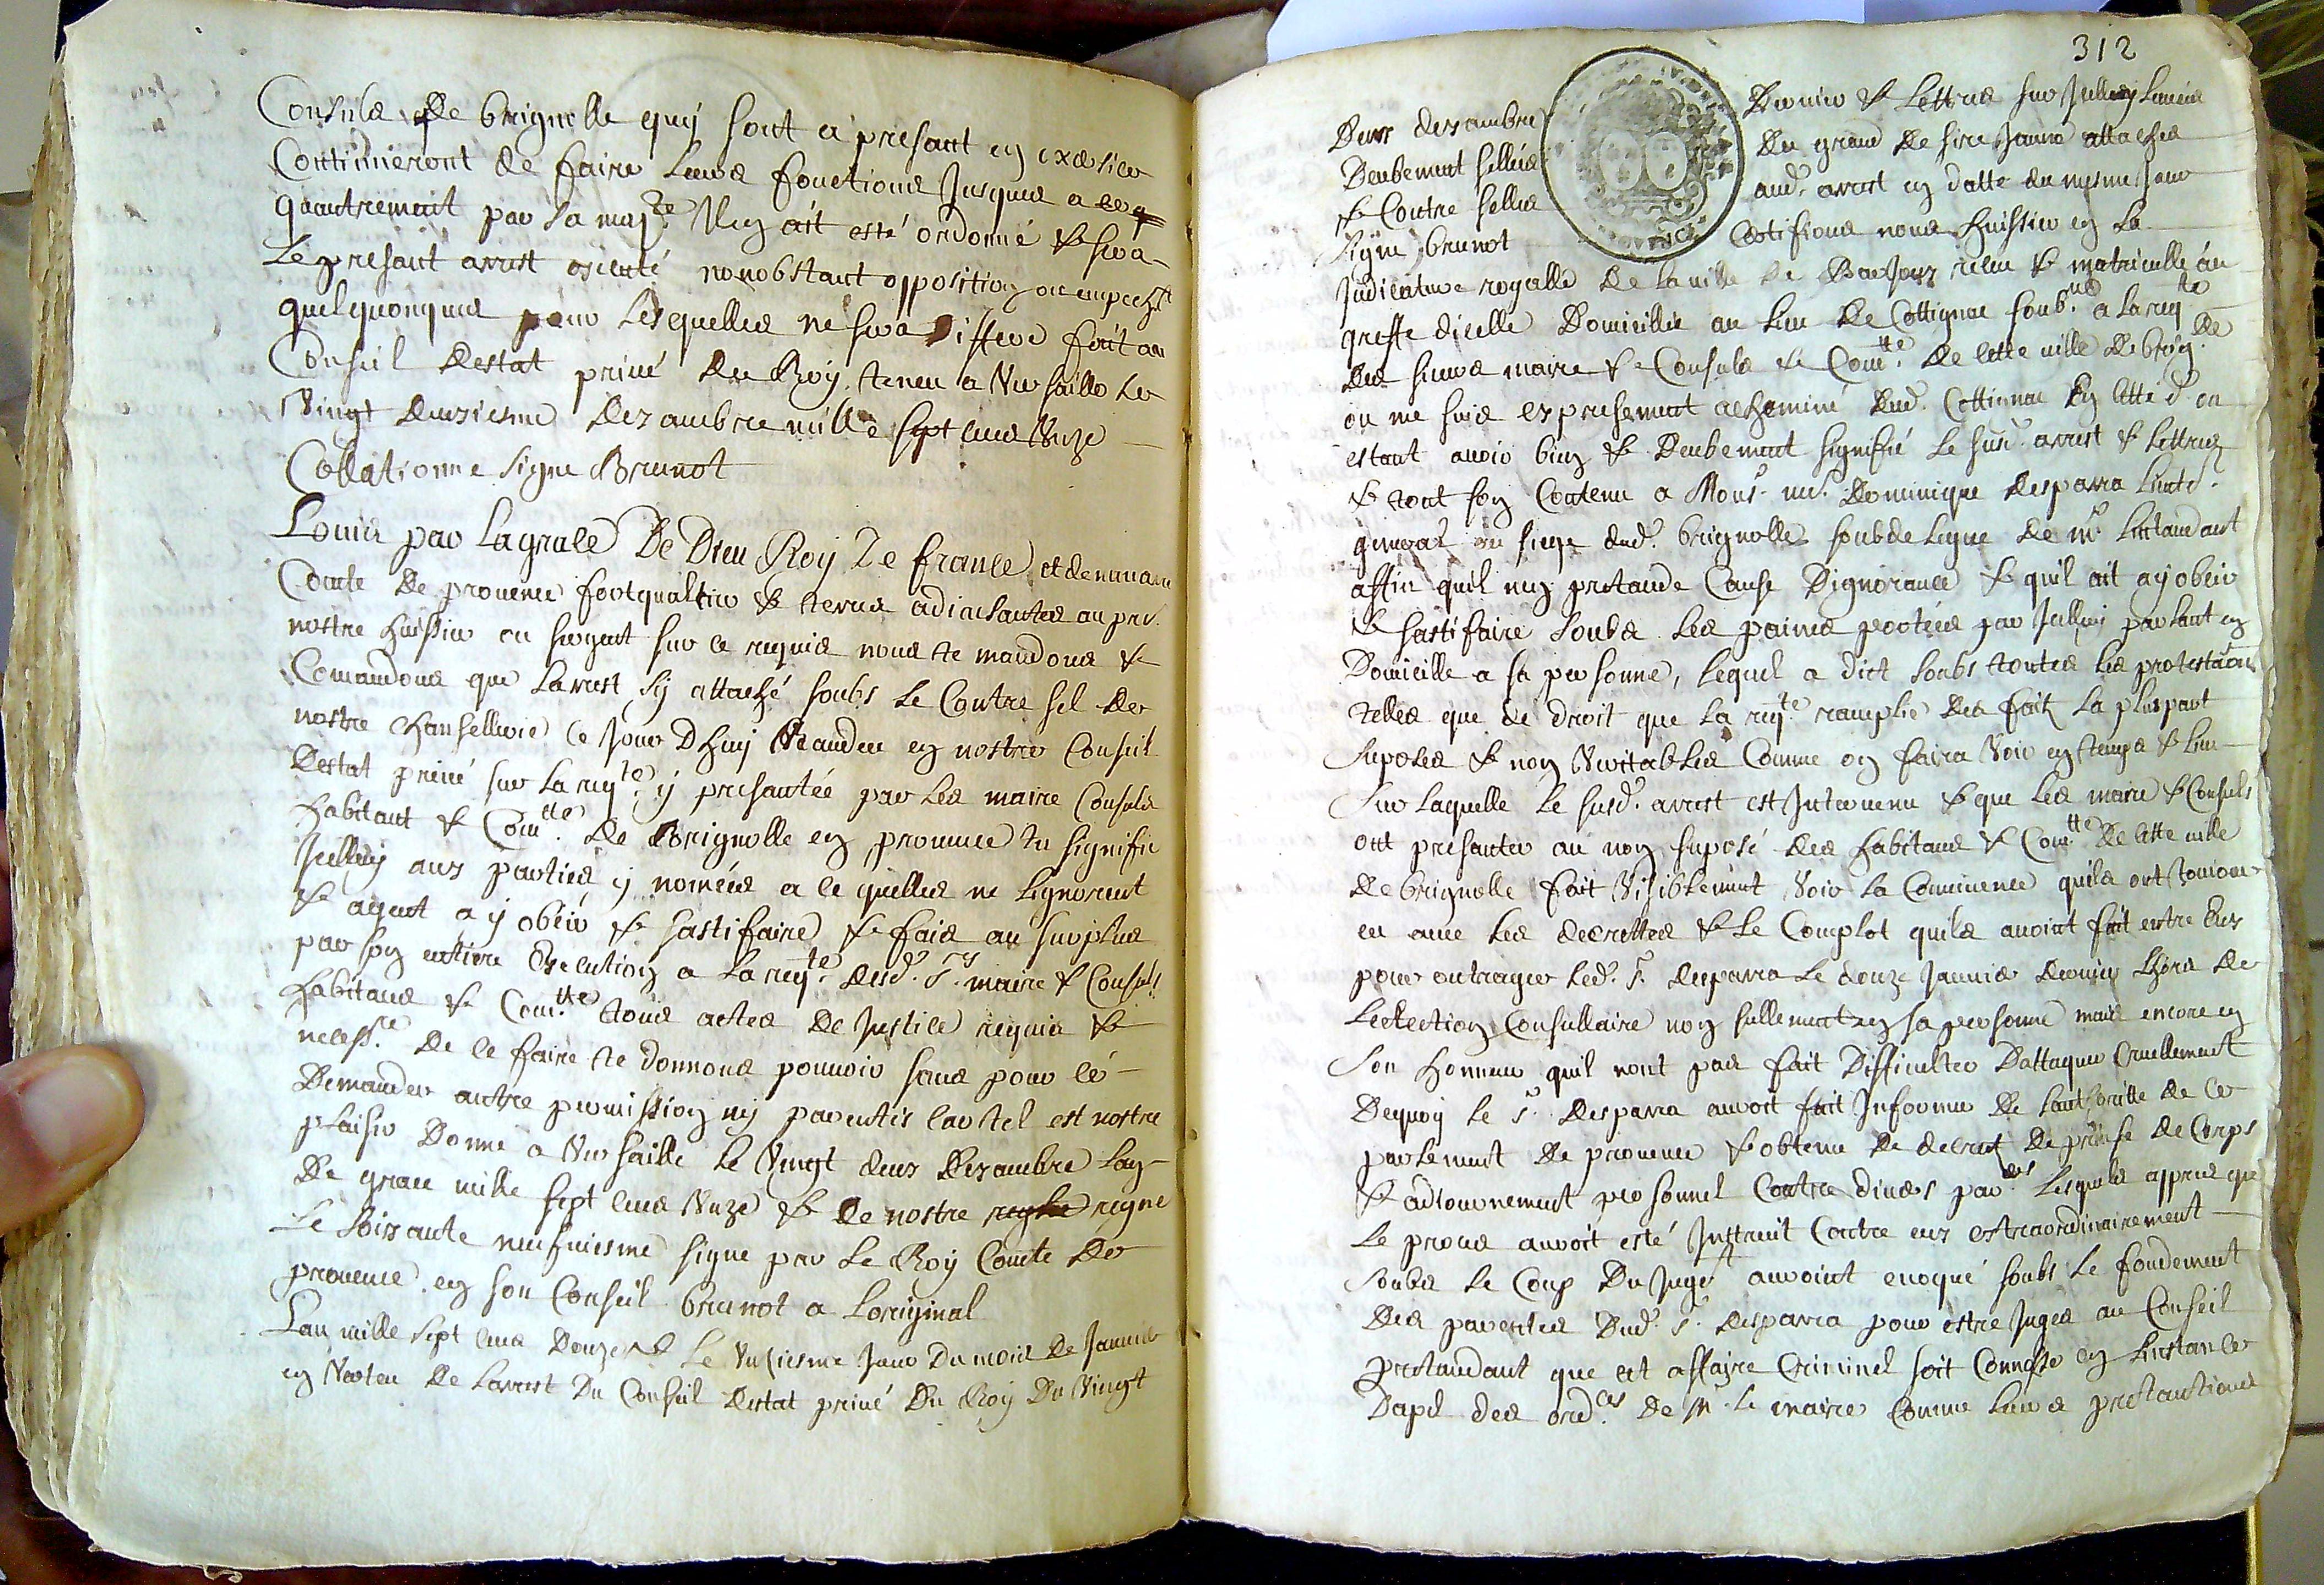 Consuls de brignolle quy sont a presant en exersice
Continueront de faire Leurs fonctions Jusques a ce q
quautrement par sa majte. Il en ait esté ordonné & sera
Le presant arrest exsecuté nonobstant opposition ou empecht
quelquonques pour Lesquelles ne sera differe fait au
Conseil destat privé du Roy tenu a Versaille le
Vingt deuxiesme dezambre mille sept cens Unze
Collationne signe Brunot
Louis par la grace De Dieu Roy De france et de navarre
Comte de provence forcqualkier & terres adiasantes au pre.
nostre huissier ou sergent sur ce requis nous te mandons &
Comandons que larrest sy attaché soubs le Contre sel de
nostre chansellerie ce jour dhuy Randeu en nostre Conseil
destat privé sur la reqte. y presantée par les maire Consuls
habitant & Comtte. de Brignolle en provence tu signifie
Jcelluy aux parties y nomées a ce quelles ne Lignorent
& ayent a y obeir & sastifaire & fais au surplus
par son entiere Execution a la reqte. desd. srs. maire & Consuls
habitans & Comtte. tous actes de Justice requis &
necessre. De ce faire te donnons pouvoir sans pour cé
Demander autre permission ny pareatis car tel est nostre
plaisir Donne a Versaille le Vingt deux dezambre Lan
De grace mille sept cens Unze & de nostre regne
Le soixante neufviesme signe par Le Roy Comte de
provence en son Conseil brunot a Loriginal
Lan mille sept cens Douze & le Unsiesme Jour Du mois de Janvier
en Verteu de Larrest Du Conseil destat privé Du Roy Du Vingt
312
Deux dezambre
Deubement sellées
& Contre sellés
Signe brunot
Dernier & Lettres sur Jcelluy Lancées
Du grand De sire Jaune attachés
aud. arrest en datte du mesme Jour
Certifions nous huissier en la
Judicature royalle De la ville De Barjous receu & matriculle au
greffe dicelle Domicillié au lieu de Cottignac soubne. a la reqte
des sieurs maire & Consuls & Comtte. De cette ville de brig. de
ou me suis expressement acheminé dud. Cottignac En cette d. ou
estant avoir bien & Deubement signifié Le susd. arrest & Lettres
& tout son Contenu a Mons. me. Dominique desparra Lieutt.
general au siege dud. brignolle soubdelegue de mr. Lintandant
affin quil nen pretande Cause Dignorance & quil ait a y obeir
& sastifaire Soubs les paines portées par Jcelluy parlant en
Domicille a sa personne, Lequel a dict soubs toutes les protestaons
telles que de droit que la reqte. ramplie des faits la pluspart
suposes & non Veritables Comme on faira Voir en temps & lieu
Sur laquelle Le susd. arrest est Intervenu & que les maire & Consuls
ont presanter au nom suposé des habitans & Comtte. De cette ville
de brignolle fait Visiblement Voir la Connivence quils ont toujour
eu avec les decrettes & Le Complot quils avoint fait entre Eux
pour outrager led. sr. desparra Le douze Janvier dernier Lhors de
Lectection Consullaire non sullement en sa personne mais encore en
son honneur quil nont pas fait Difficulter Dattaquer Cruellement
Dequoy le sr. Desparra auroit fait Informer De Lauthoritte de ce
parlement De provence & obtenu De decrest De prinse de Corps
& adiournement personnel Contre divers par.ers Lesquels appres que
Le proces auroit esté Instruit Contre eux extraordinairement
Soubs Le Coup Du Juget auroint evoqué soubs Le fondement
Des parentes Dud. sr. desparra pour estre Juges au Conseil
pretandant que cet affaire Criminel soit Connexe en Linstance
Dapel des ordces. De mr. le maire Comme Leurs pretantions